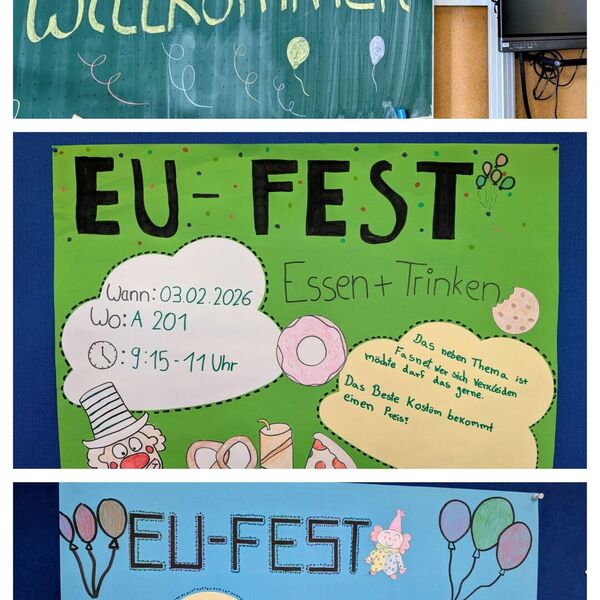 WILLKOMMEN
EU-FEST
Essen + Trinken
Wann: 03.02.2026
Wo: A 201
: 9:15-11 Uhr
Das neben Thema ist
Fasnet wer sich verkleiden
möchte darf das gerne.
Das Beste Kostüm bekommt
einen Preis!
EU-FEST